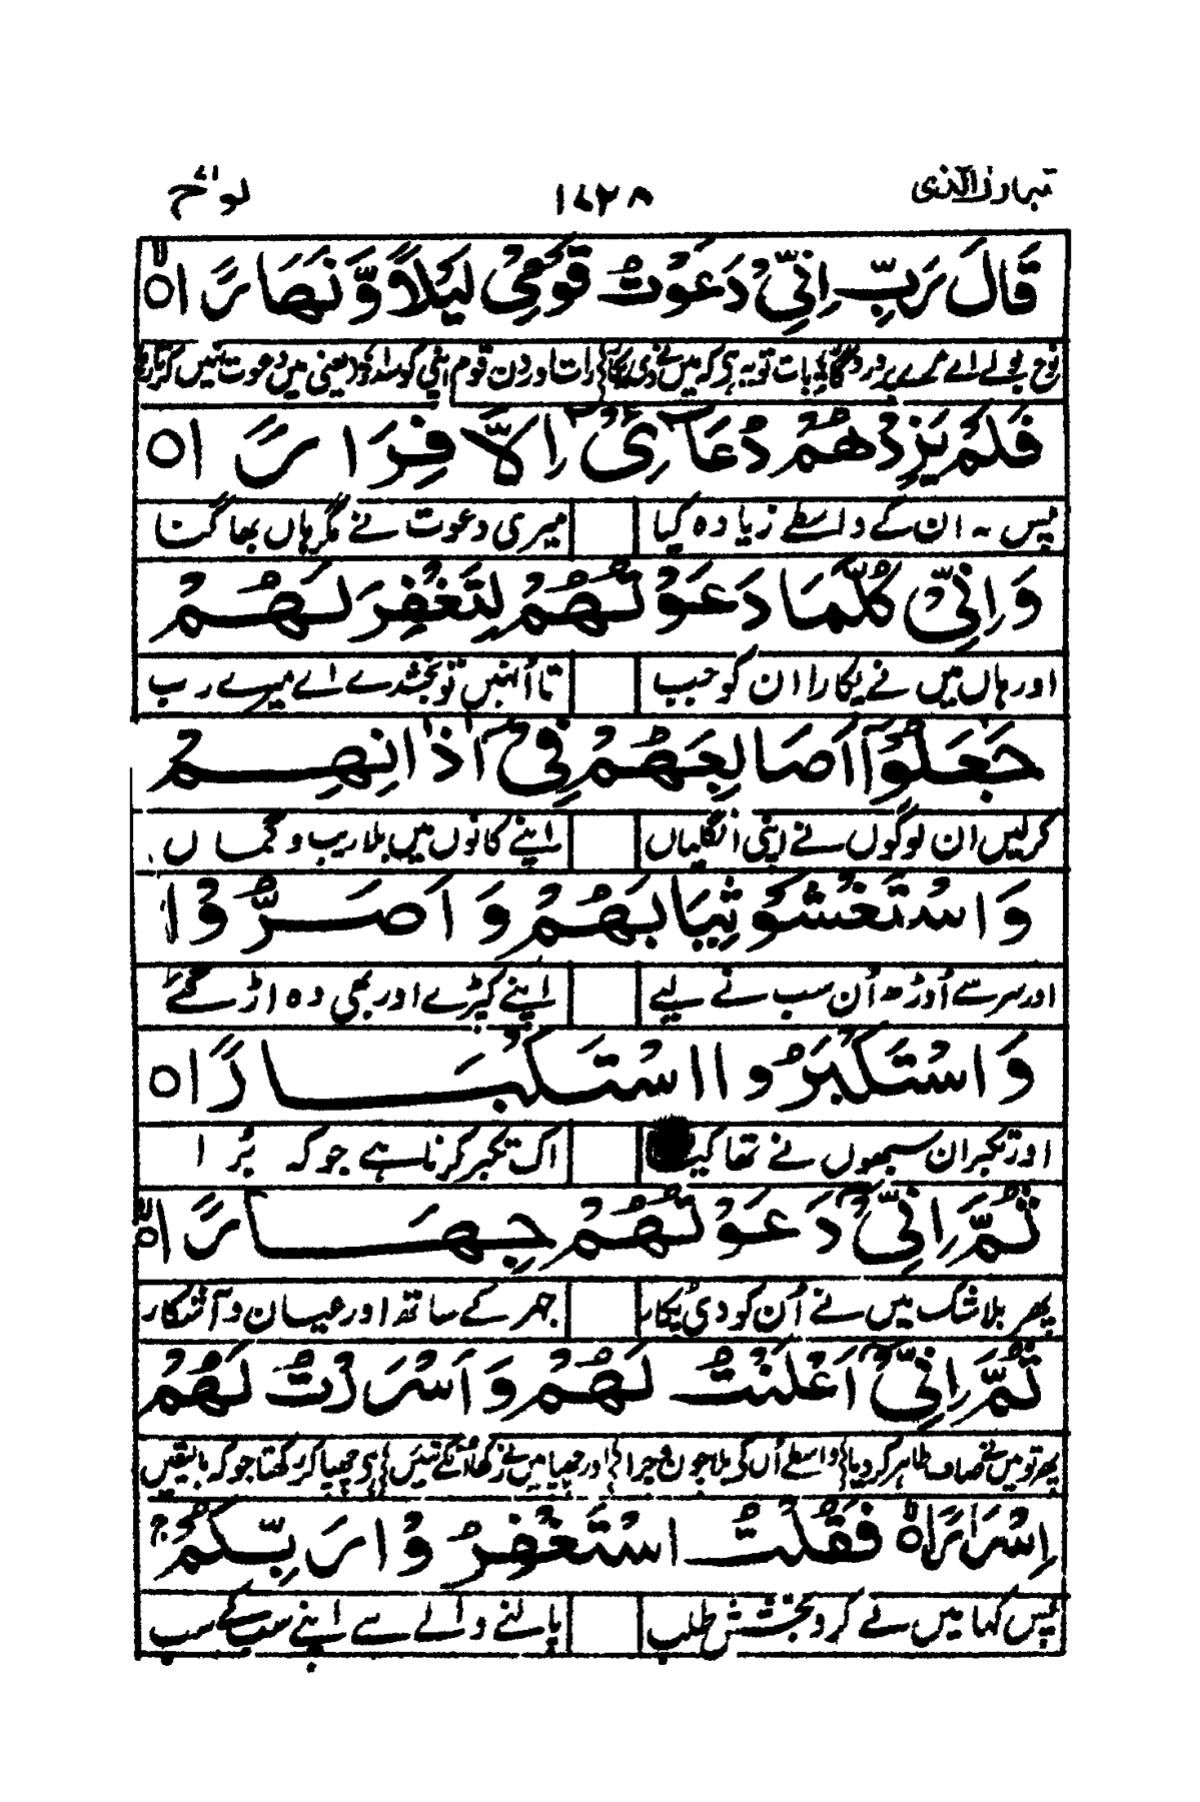 تبارک الذی ۱۴۲۸ نوح ۷۱
قَالَ رَبِّ اِنِّیْ دَعَوْتُ قَوْمِیْ لَیْلًا وَّ نَهَارًا ۵
نوح بولے اے میرے پروردگار بات تو یہ ہے کہ میں نے دی رات اور دن قوم اپنی کو یعنی میں دعوت نہیں کرتا
فَلَمْ یَزِدْهُمْ دُعَآءِیْ اِلَّا فِرَارًا ۵
پس نہ ان کے واسطے زیادہ کیا میری دعوت نے مگر ہاں بھاگنا
وَ اِنِّیْ كُلَّمَا دَعَوْتُهُمْ لِتَغْفِرَ لَهُمْ
اور ہاں میں نے پکارا ان کو جب تا اُنہیں تو بخشدے اے میرے رب
جَعَلُوْۤا اَصَابِعَهُمْ فِیْۤ اٰذَانِهِمْ
کر لیں ان لوگوں نے اپنی انگلیاں اپنے کانوں میں بلا ریب و گماں
وَ اسْتَغْشَوْ ثِیَابَهُمْ وَ اَصَرُّوْا
اور سر سے اُوڑھ اُن سب نے لیے اپنے کپڑے اور بھی وہ اڑ گئے
وَ اسْتَكْبَرُوا اسْتِكْبَارًا ۵
اور تکبر ان سبھوں نے تھا کیا اک تکبر کرنا ہے جو کہ بُرا
ثُمَّ اِنِّیْ دَعَوْتُهُمْ جِهَارًا ۵
پھر بلا شک میں نے اُن کو دی پکار جہر کے ساتھ اور عیان و آشکار
ثُمَّ اِنِّیْۤ اَعْلَنْتُ لَهُمْ وَ اَسْرَرْتُ لَهُمْ
پھر تو میں نے صاف ظاہر کر دیا واسطے اُن کے بلا چون و چرا اور چھپا میں نے رکھا اُنکے تئیں ہی چھپا کر رکھنا جو کہ بالیقیں
اِسْرَارًا ۵ فَقُلْتُ اسْتَغْفِرُوْا رَبَّكُمْ
پس کہا میں نے کرو بخشش طلب پالنے والے سے اپنے سب کے سب